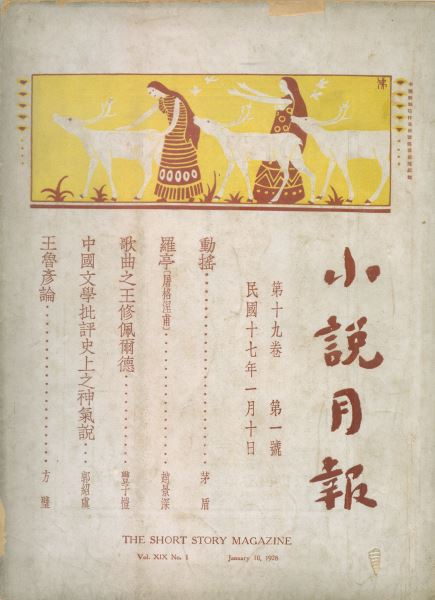 小說月報
第十九卷 第一號
民國十七年一月十日
動搖 茅盾
羅亭(屠格涅甫) 趙景深
歌曲之王修佩爾德 豐子愷
中國文學批評史上之神氣說 郭紹虞
王魯彥論 方璧
THE SHORT STORY MAGAZINE
Vol. XIX No. 1 January 10, 1928